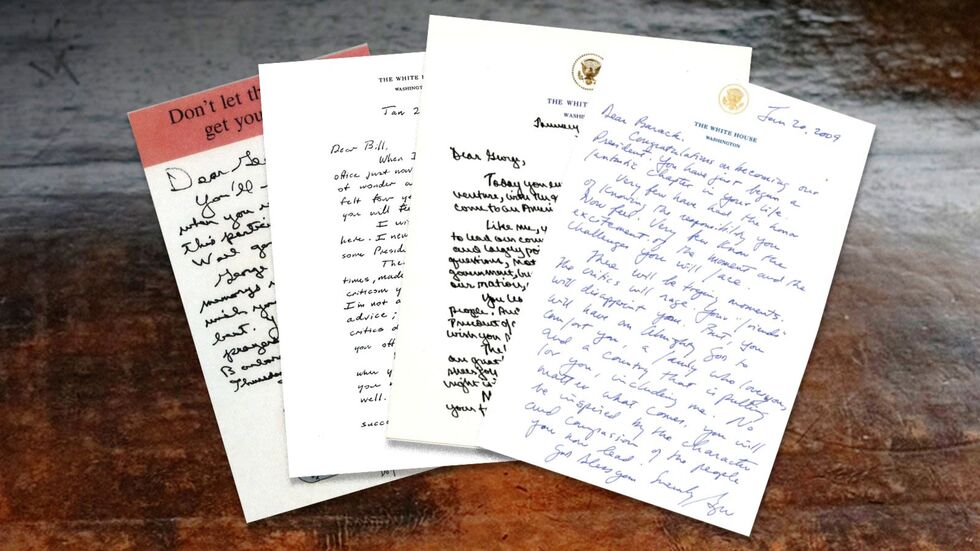 Don't let th
get you
Dear Geo
You'll
when you
this partic
Well go
George
memorys
with you
prayers
Barbar
Thursda
THE WHITE HOUSE
WASHINGT
Jan 2
Dear Bill,
When I
office just now
of wonder a
felt four ye
you will fe
I wi
here. I nev
some Presid
The
times, made
criticism y
I'm not a
advice;
critics d
you off
when y
you
well.
succ
THE WHIT
WASHI
January
Dear George,
Today you em
venture, with the g
come to an Ameri
Like me, y
to lead our coun
and largely po
questions, most
government, bu
our nation,
You lea
people. An
President of
wish you
The
are great
sheer joy
right is
N
your f
THE WHITE HOUSE
WASHINGTON
Jan 20, 2009
Dear Barack,
Congratulations on becoming our
President. You have just begun a
fantastic chapter in your life.
Very few have had the honor
of knowing the responsibility you
now feel. Very few know the
excitement of the moment and the
challenges you will face.
There will be trying moments.
The critics will rage. Your "friends"
will disappoint you. But, you
will have an Almighty God to
comfort you, a family who loves you,
and a country that is pulling
for you, including me. No
matter what comes, you will
be inspired by the character
and compassion of the people
you now lead.
God bless you.
Sincerely,